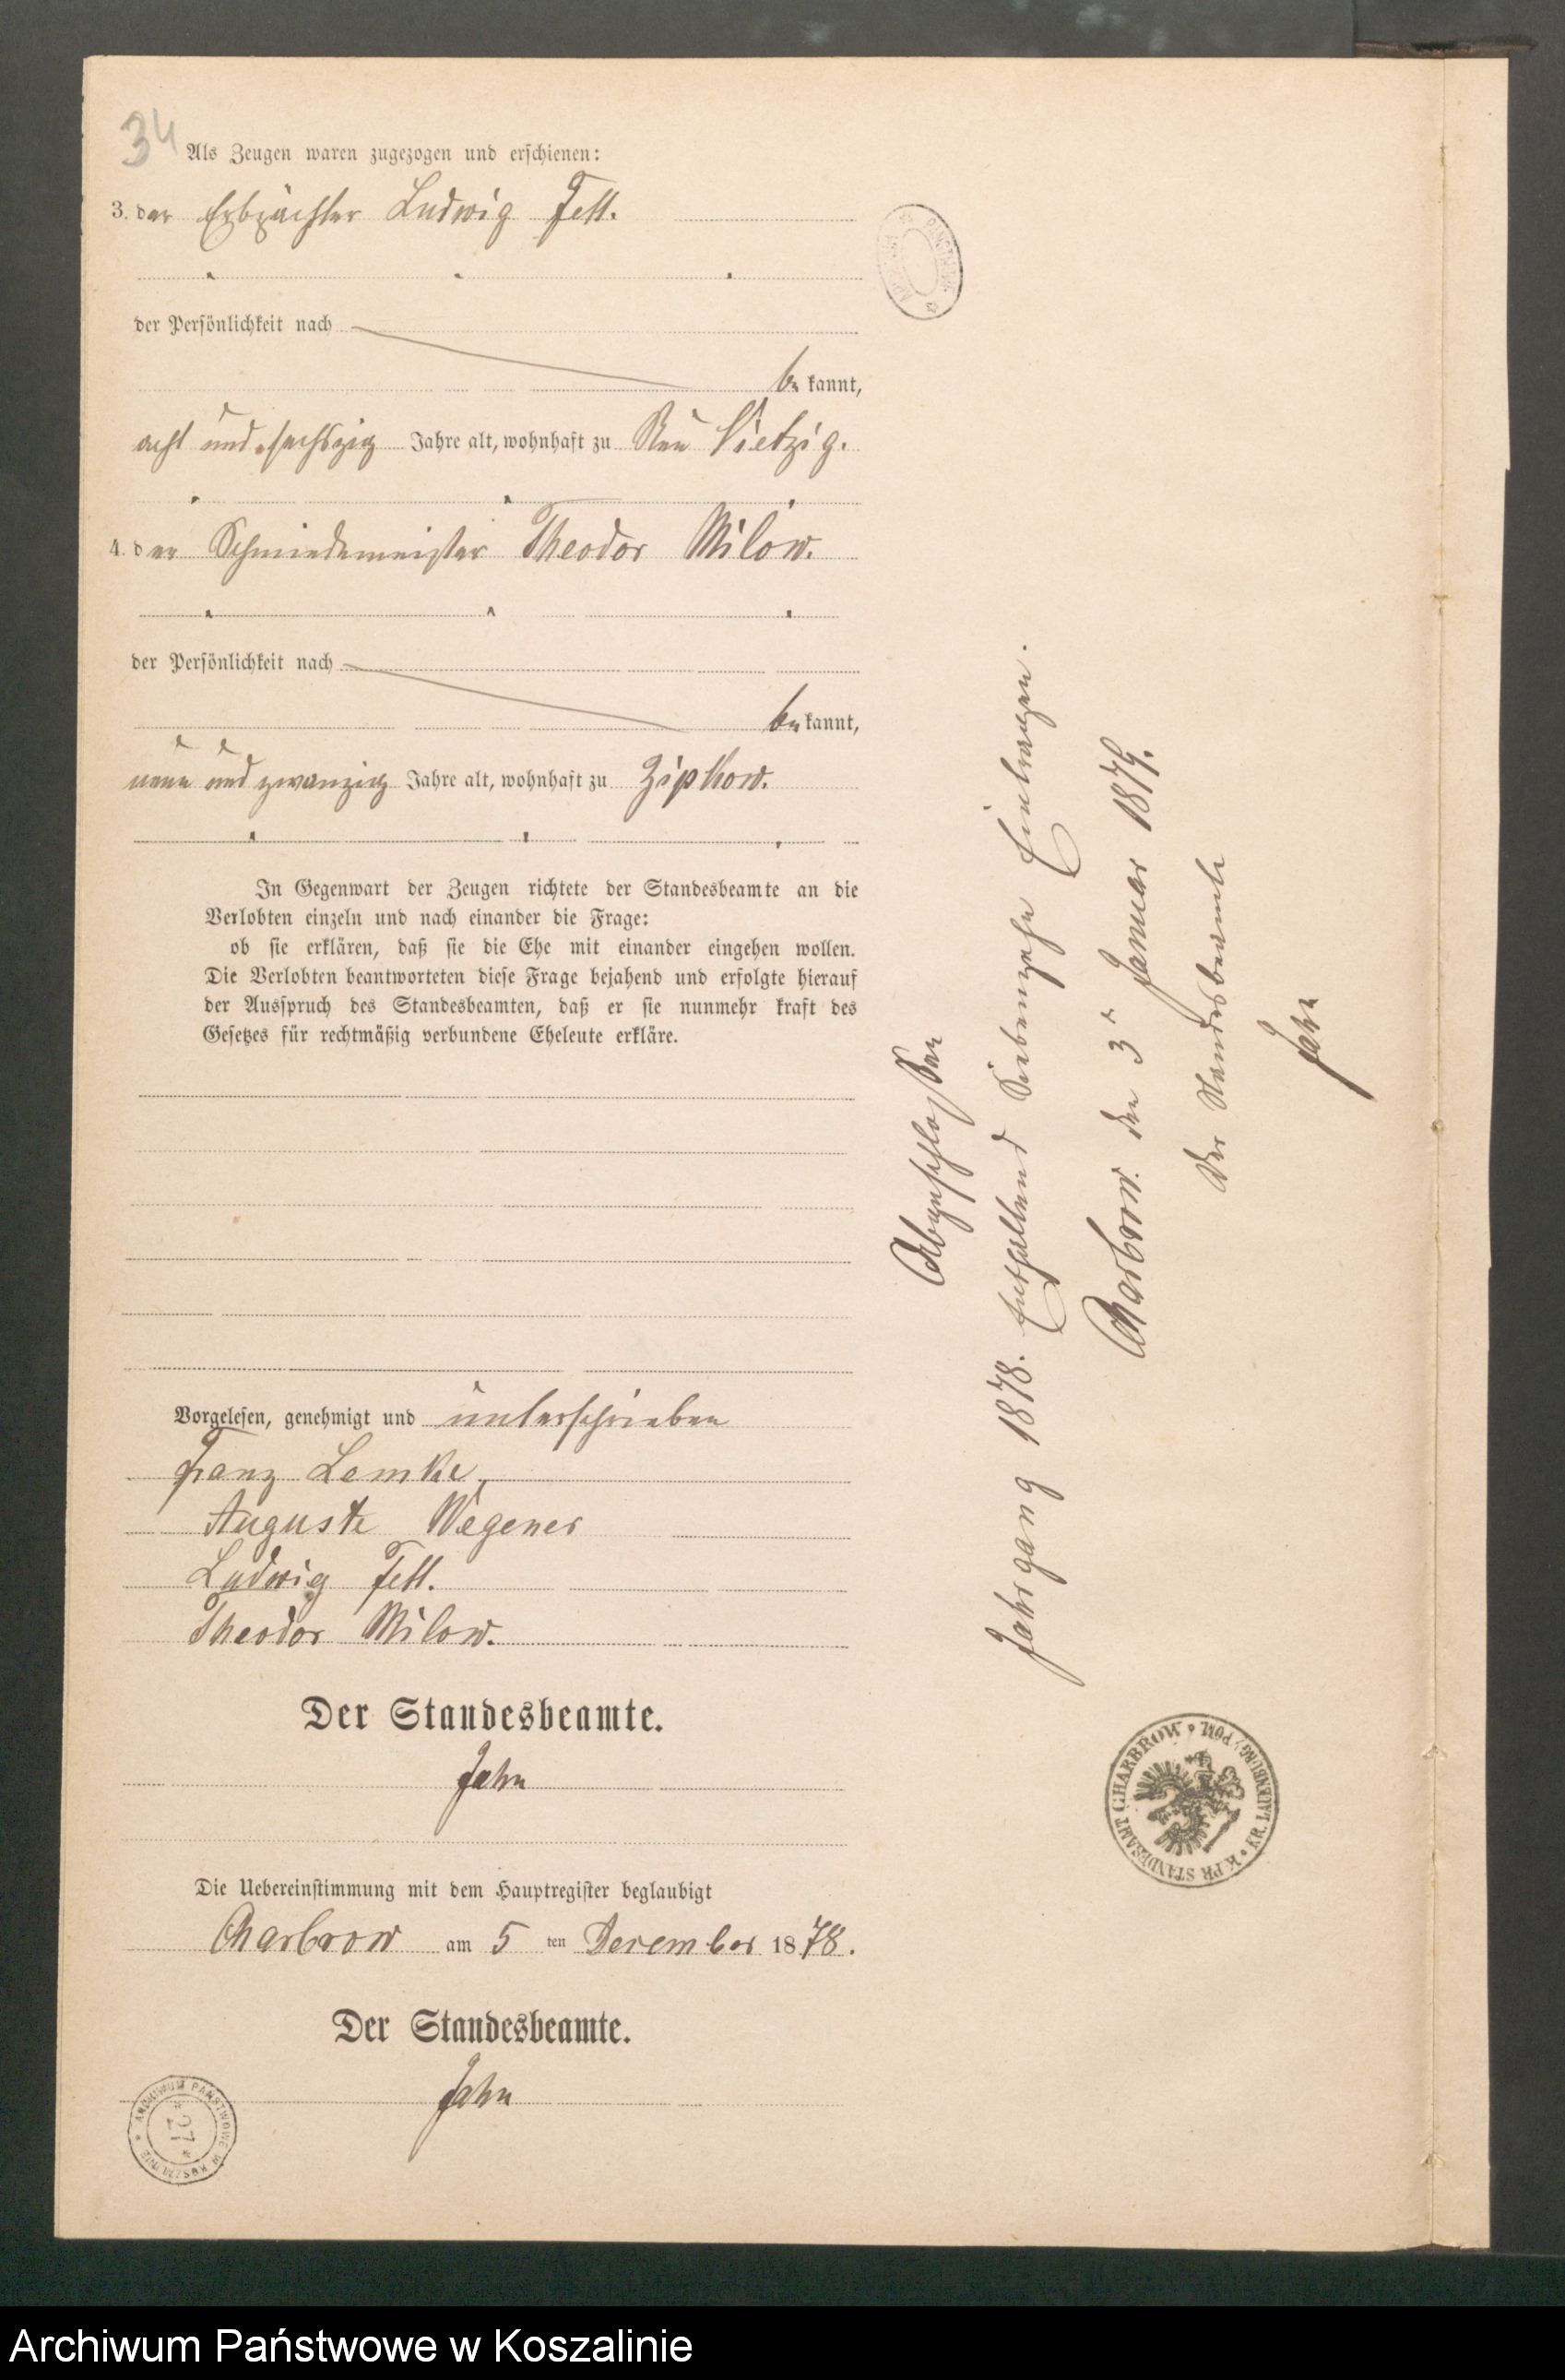 34
Als Zeugen waren zugezogen und erschienen:
3. der Erbpächter Ludwig Fett.
der Persönlichkeit nach
be kannt,
acht und sechszig Jahre alt, wohnhaft zu Neu Vietzig.
4. der Schmiedemeister Theodor Milow.
der Persönlichkeit nach
be kannt,
neun und zwanzig Jahre alt, wohnhaft zu Zipkow.
In Gegenwart der Zeugen richtete der Standesbeamte an die
Verlobten einzeln und nach einander die Frage:
ob sie erklären, daß sie die Ehe mit einander eingehen wollen.
Die Verlobten beantworteten diese Frage bejahend und erfolgte hierauf
der Ausspruch des Standesbeamten, daß er sie nunmehr kraft des
Gesetzes für rechtmäßig verbundene Eheleute erkläre.
Vorgelesen, genehmigt und unterschrieben
Franz Lemke,
Auguste Wegener
Ludwig Fett.
Theodor Milow.
Der Standesbeamte.
Jahn
Die Uebereinstimmung mit dem Hauptregister beglaubigt
Charbrow am 5 ten Dezember 1878.
Der Standesbeamte.
Jahn
Abgeschlossen
Jahrgang 1878. Enthaltend Siebenzehn Eintragen.
Charbrow. den 3n Januar 1879.
Der Standesbeamte
Jahn
K. PR. STANDESAMT CHARBROW • KR. LAUENBURG/POM.
ARCHIWUM PAŃSTWOWE W KOSZALINIE
* 27 *
Archiwum Państwowe w Koszalinie